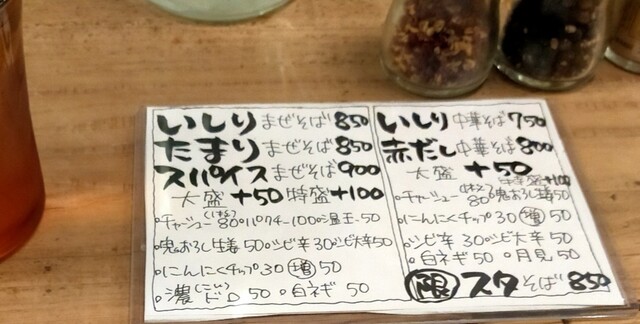 いしり まぜそば 850
たまり まぜそば 850
スパイス まぜそば 900
大盛 +50 特盛 +100
・チャーシュー 80 ・パクチー 100 ・温玉 50
・鬼おろし生姜 50 ・シビ辛 30 ・シビ大辛 50
・にんにくチップ 30 増 50
・濃ドロ 50 ・白ネギ 50
いしり 中華そば 750
赤だし 中華そば 800
大盛 +50
+100
・チャーシュー 80 ・鬼おろし生姜 50
・にんにくチップ 30 増 50
・シビ辛 30 ・シビ大辛 50
・白ネギ 50 ・月見 50
限 スタそば 850